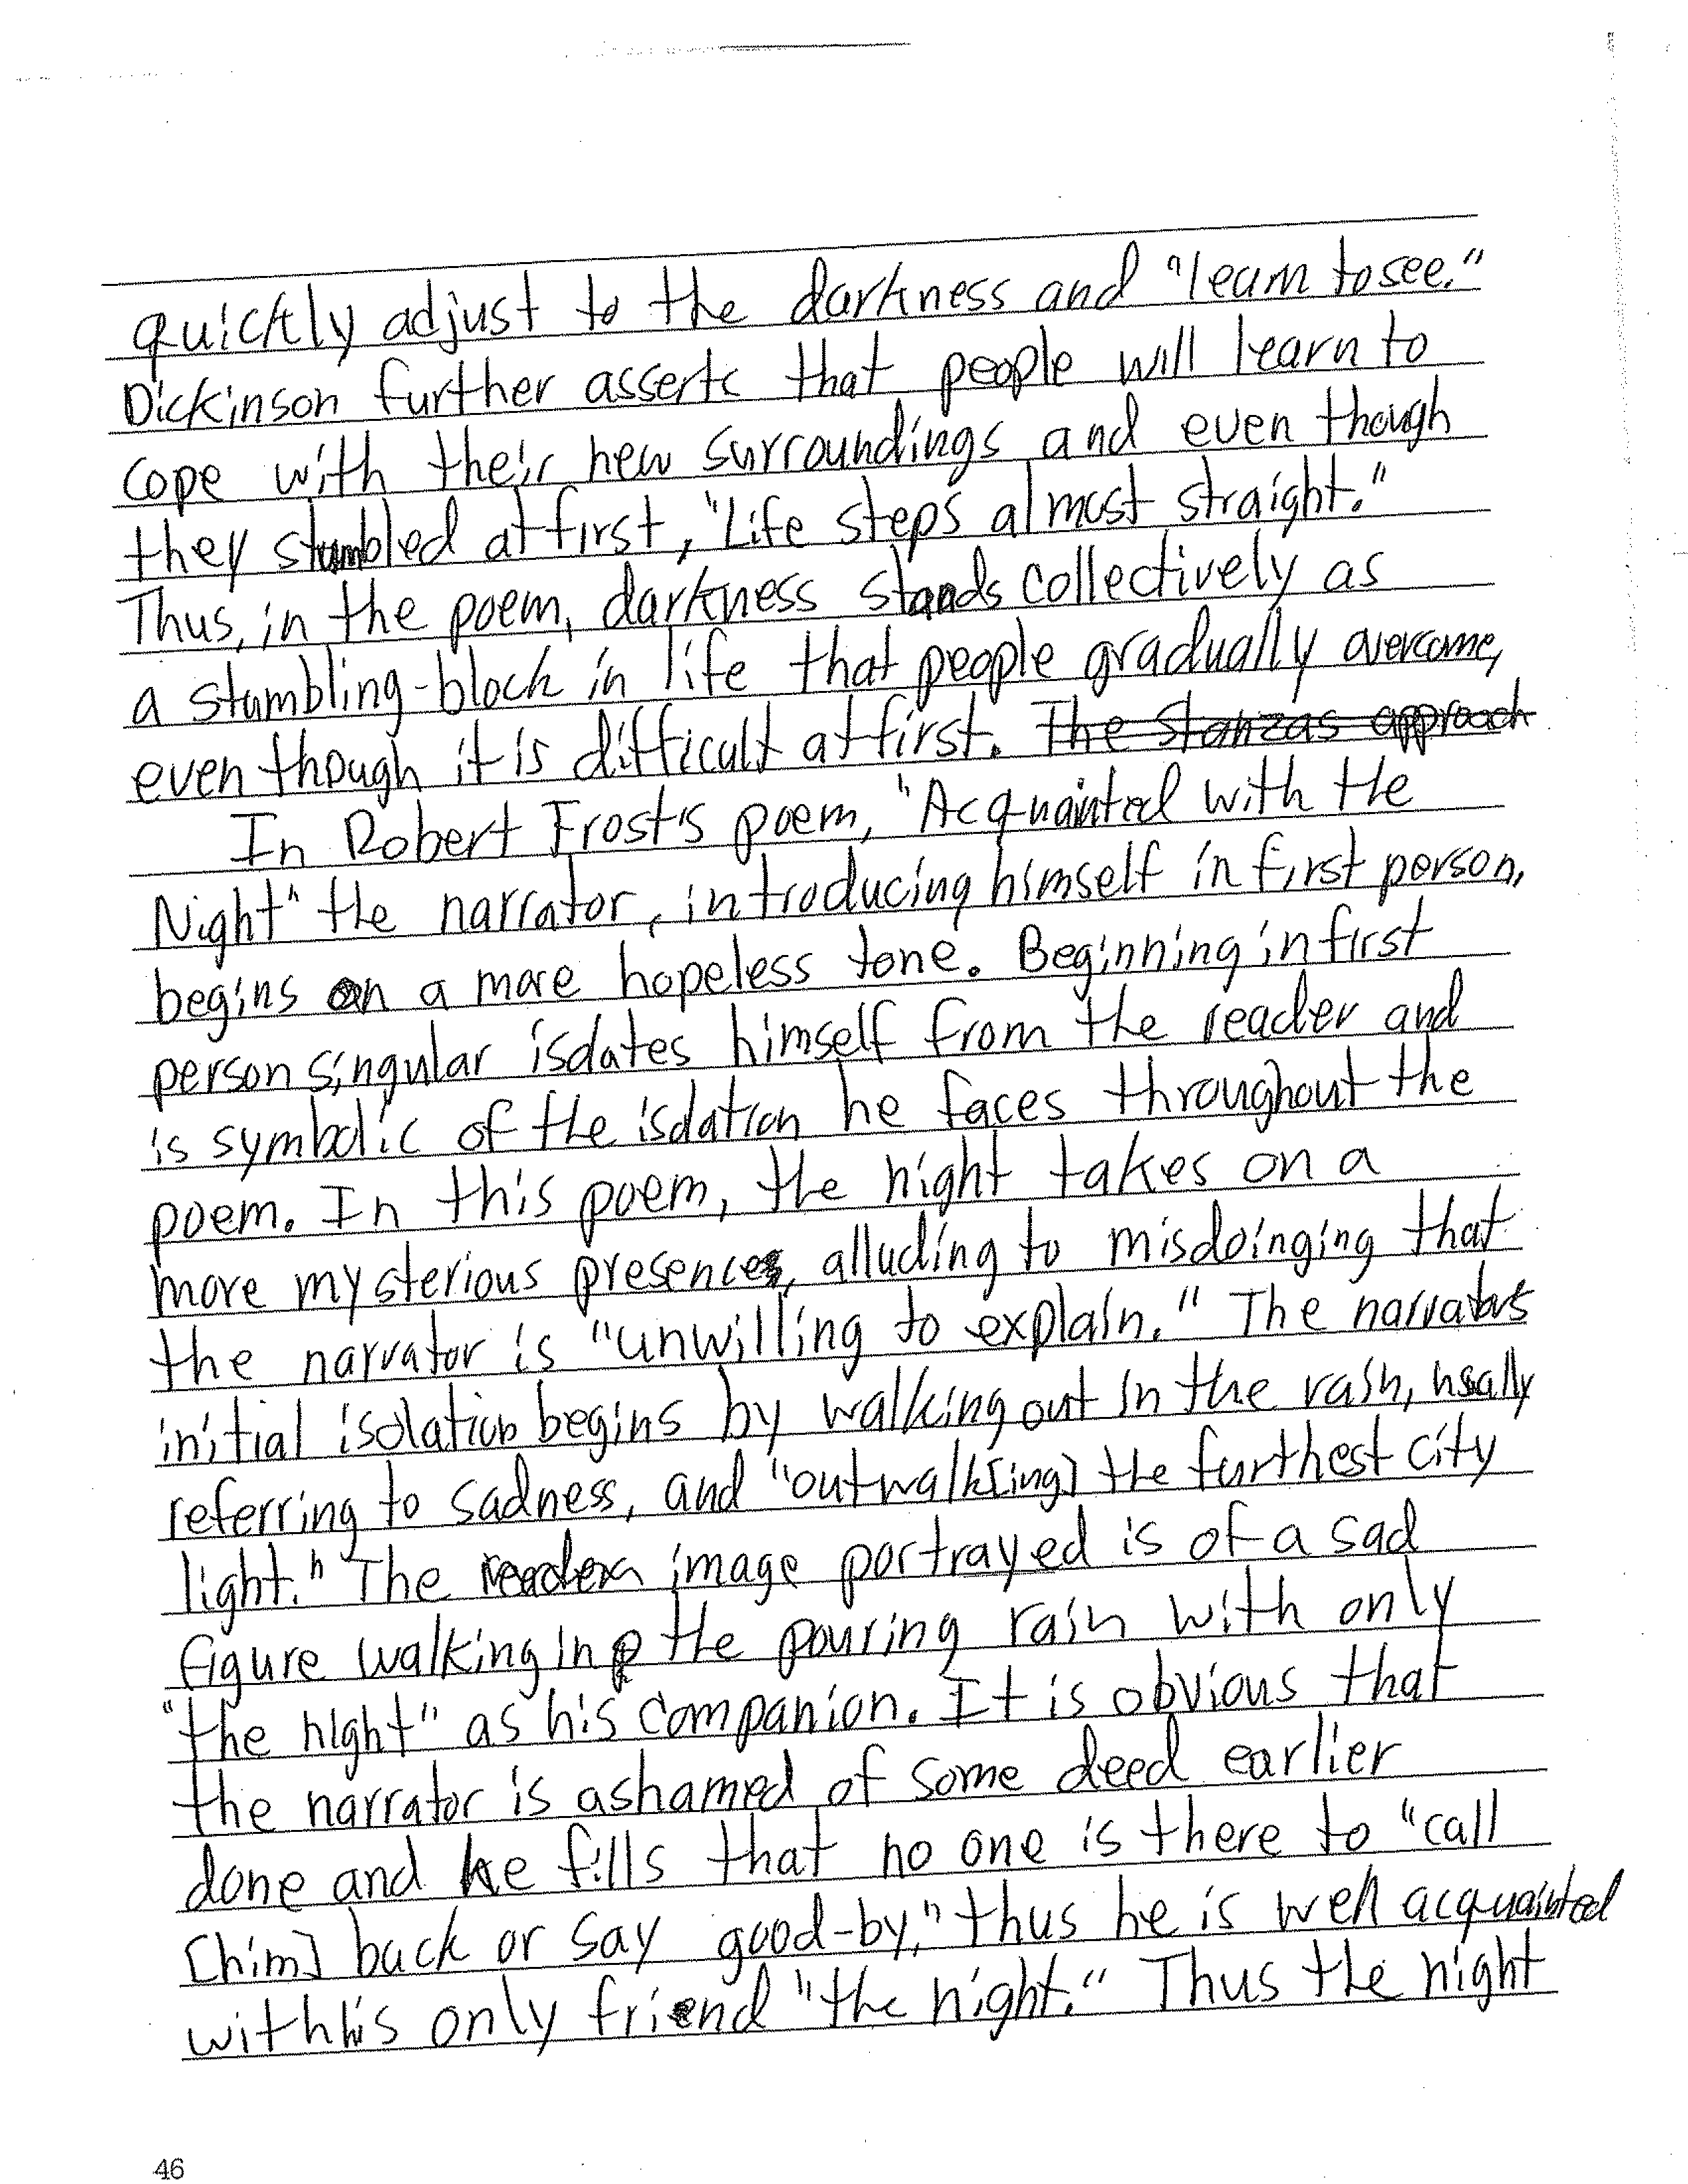 quickly adjust to the darkness and "learn to see."
Dickinson further asserts that people will learn to
cope with their new surroundings and even though
they stumbled at first, "Life steps almost straight."
Thus, in the poem, darkness stands collectively as
a stumbling-block in life that people gradually overcome,
even though it is difficult at first. The stanzas approach
In Robert Frost's poem, "Acquainted with the
Night" the narrator, introducing himself in first person,
begins on a more hopeless tone. Beginning in first
person singular isolates himself from the reader and
is symbolic of the isolation he faces throughout the
poem. In this poem, the night takes on a
more mysterious presence, alluding to misdoinging that
the narrator is "unwilling to explain." The narrator's
initial isolation begins by walking out in the rain, usually
referring to sadness, and "outwalk[ing] the furthest city
light." The image portrayed is of a sad
figure walking in the pouring rain with only
"the night" as his companion. It is obvious that
the narrator is ashamed of some deed earlier
done and he fills that no one is there to "call
[him] back or say good-by," thus he is well acquainted
with his only friend "the night." Thus the night
46